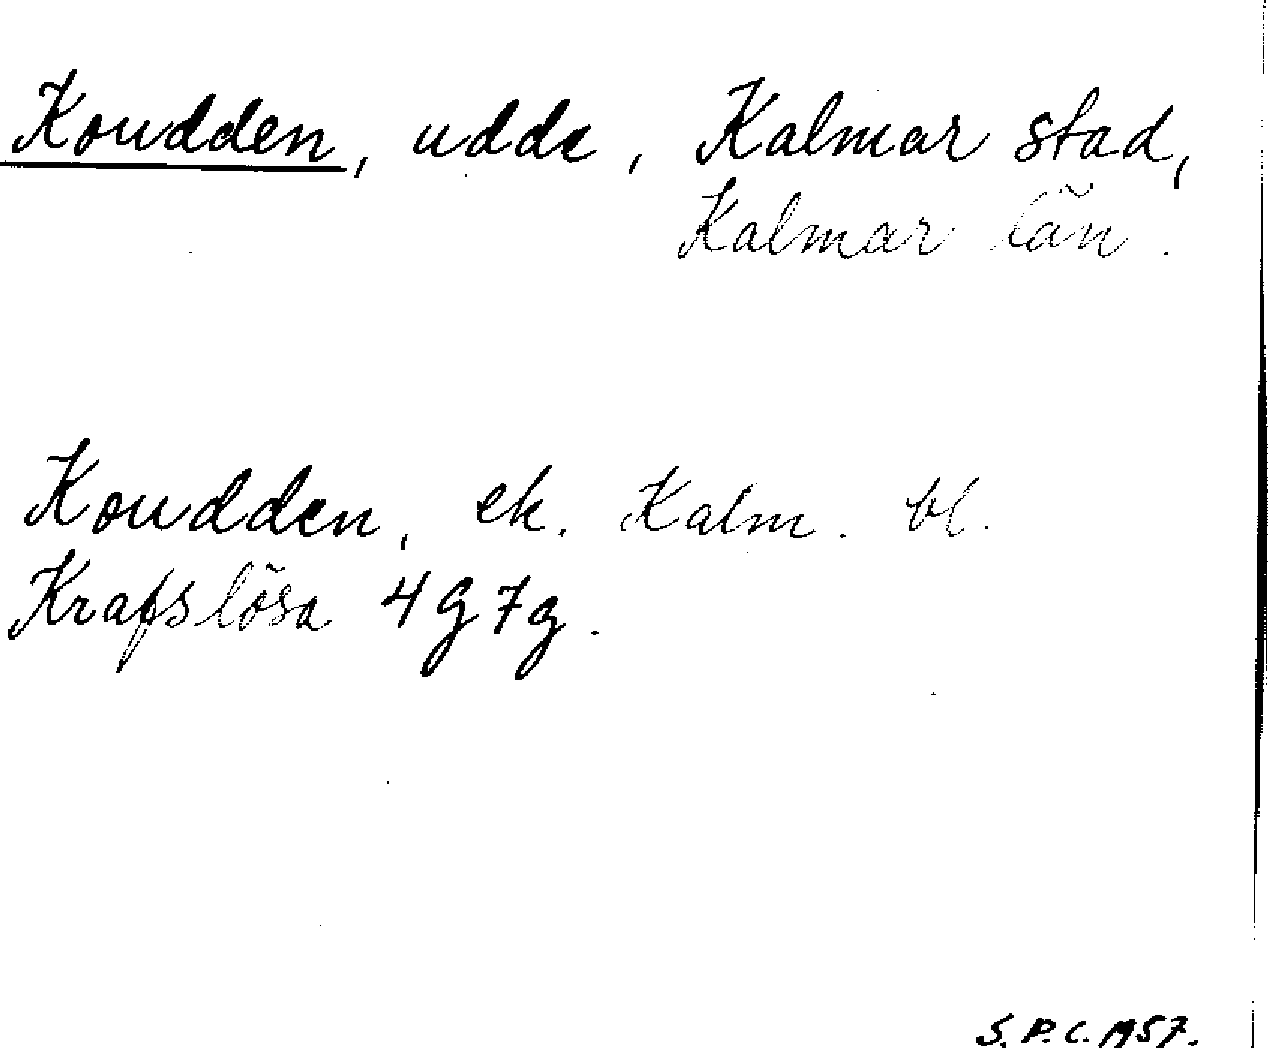 Koudden, udde, Kalmar stad,
Kalmar län.
Koudden, ek. Kalm. bl.
Krafslösa 4g7g.
S.P.C. 1957.